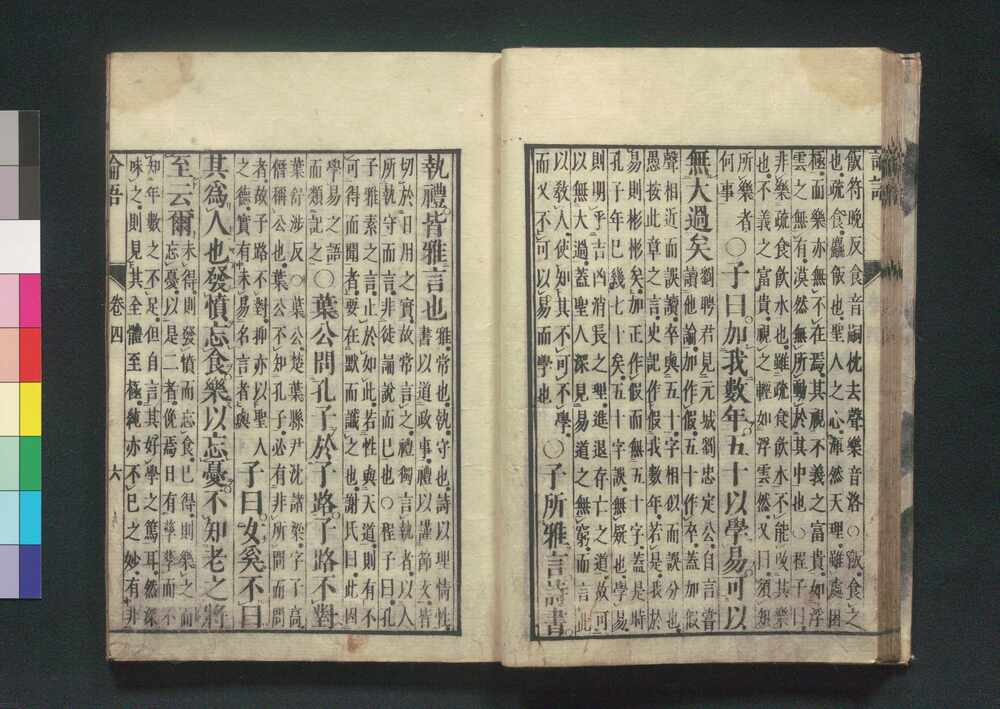 論語
飯符晚反食音嗣枕去聲樂音洛○飯食之
也疏食麤飯也聖人之心渾然天理雖處困
極而樂亦無不在焉其視不義之富貴如浮
雲之無有漠然無所動於其中也○程子曰
非樂疏食飲水也雖疏食飲水不能改其樂
也不義之富貴視之輕如浮雲然又曰須知
所樂者
何事
○子曰加我數年五十以學易可以
無大過矣
劉聘君見元城劉忠定公自言嘗
讀他論加作假五十作卒蓋加假
聲相近而誤讀卒與五十字相似而誤分也
愚按此章之言史記作假我數年若是我於
易則彬彬矣加正作假而無五十字蓋是時
孔子年已幾七十矣五十字誤無疑也學易
則明乎吉凶消長之理進退存亡之道故可
以無大過蓋聖人深見易道之無窮而言此
以教人使知其不可不學
而又不可以易而學也
○子所雅言詩書
執禮皆雅言也
雅常也執守也詩以理情性
書以道政事禮以謹節文皆
切於日用之實故常言之禮獨言執者以人
所執守而言非徒誦說而已也○程子曰孔
子雅素之言止於如此若性與天道則有不
可得而聞者要在默而識之也謝氏曰此因
學易之語
而類記之
○葉公問孔子於子路子路不對
葉舒涉反○葉公楚葉縣尹沈諸梁字子高
僭稱公也葉公不知孔子必有非所問而問
者故子路不對抑亦以聖人
之德實有未易名言者與
子曰女奚不曰
其為人也發憤忘食樂以忘憂不知老之將
至云爾
未得則發憤而忘食已得則樂之而
忘憂以是二者俛焉日有孳孳而不
知年數之不足但自言其好學之篤耳然深
味之則見其全體至極純亦不已之妙有非
論語 卷四 六